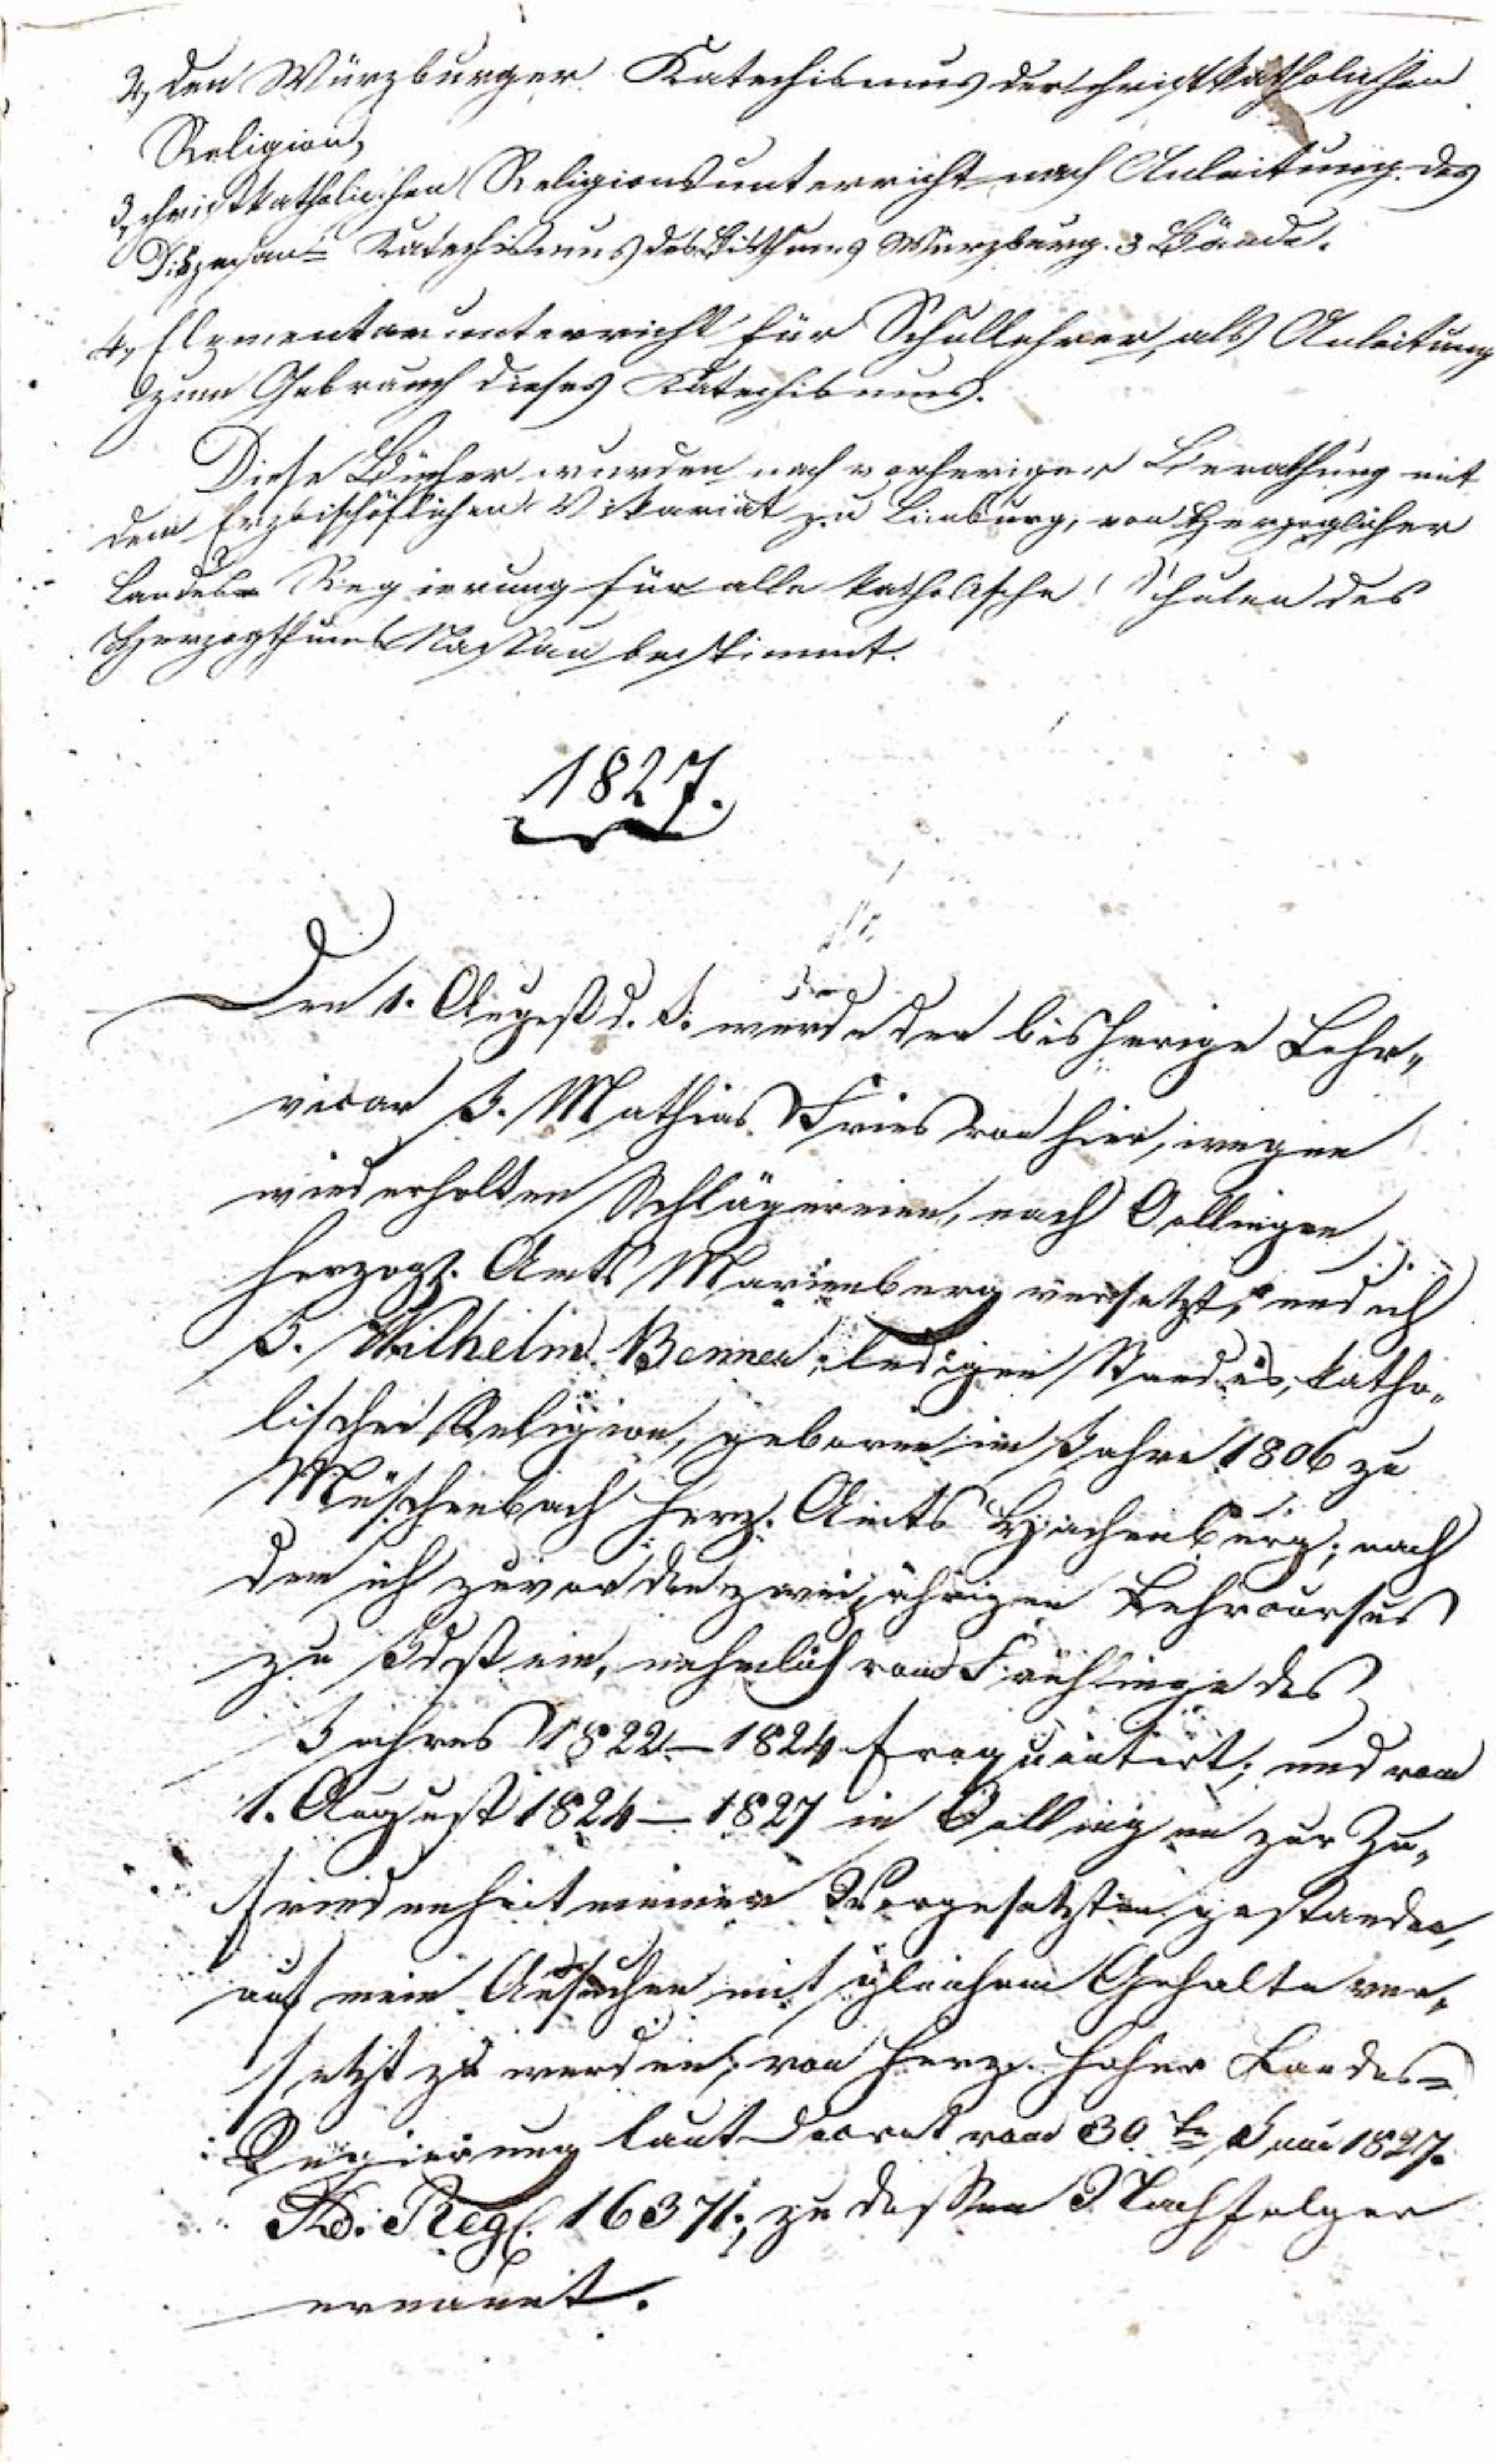 2, den Würzburger Katechismus der christkatholischen
Religion,
3, christkatholischen Religionsunterricht nach Anleitung des
Diözesan= Katechismus des Bisthums Würzburg. 3 Bände.
4, Elementarunterricht für Schullehrer, als Anleitung
zum Gebrauch dieses Katechismus.
Diese Bücher wurden nach vorheriger Berathung mit
dem Erzbischöflichen Vikariat zu Limburg, von Herzoglicher
Landes= Regierung für alle katholische Schulen des
Herzogthums Nassau bestimmt.
1827.
Den 1. August d. J. wurde der bisherige Lehr„
vicar J. Mathias Fries von hier, wegen
wiederholten Schlägereien, nach Oellingen
Herzogl. Amts Marienberg versetzt, und ich
J. Wilhelm Benner, ledigen Standes, katho„
lischer Religion, geboren im Jahre 1806 zu
Müschenbach Herz. Amts Hachenburg; nach
dem ich zuvor den zweijährigen Lehrcursus
zu Idstein, nehmlich vom Frühlinge des
Jahres 1822–1824 frequentirt; und vom
1. August 1824–1827 in Oellingen zur Zu„
friedenheit meiner Vorgesetzten gestanden,
auf mein Ansuchen mit gleichem Gehalte ver„
setzt zu werden; von Herz. hoher Landes=
Regierung laut Decret vom 30ten Juni 1827.
Ad. Reg. 16371., zu dessen Nachfolger
ernannt.